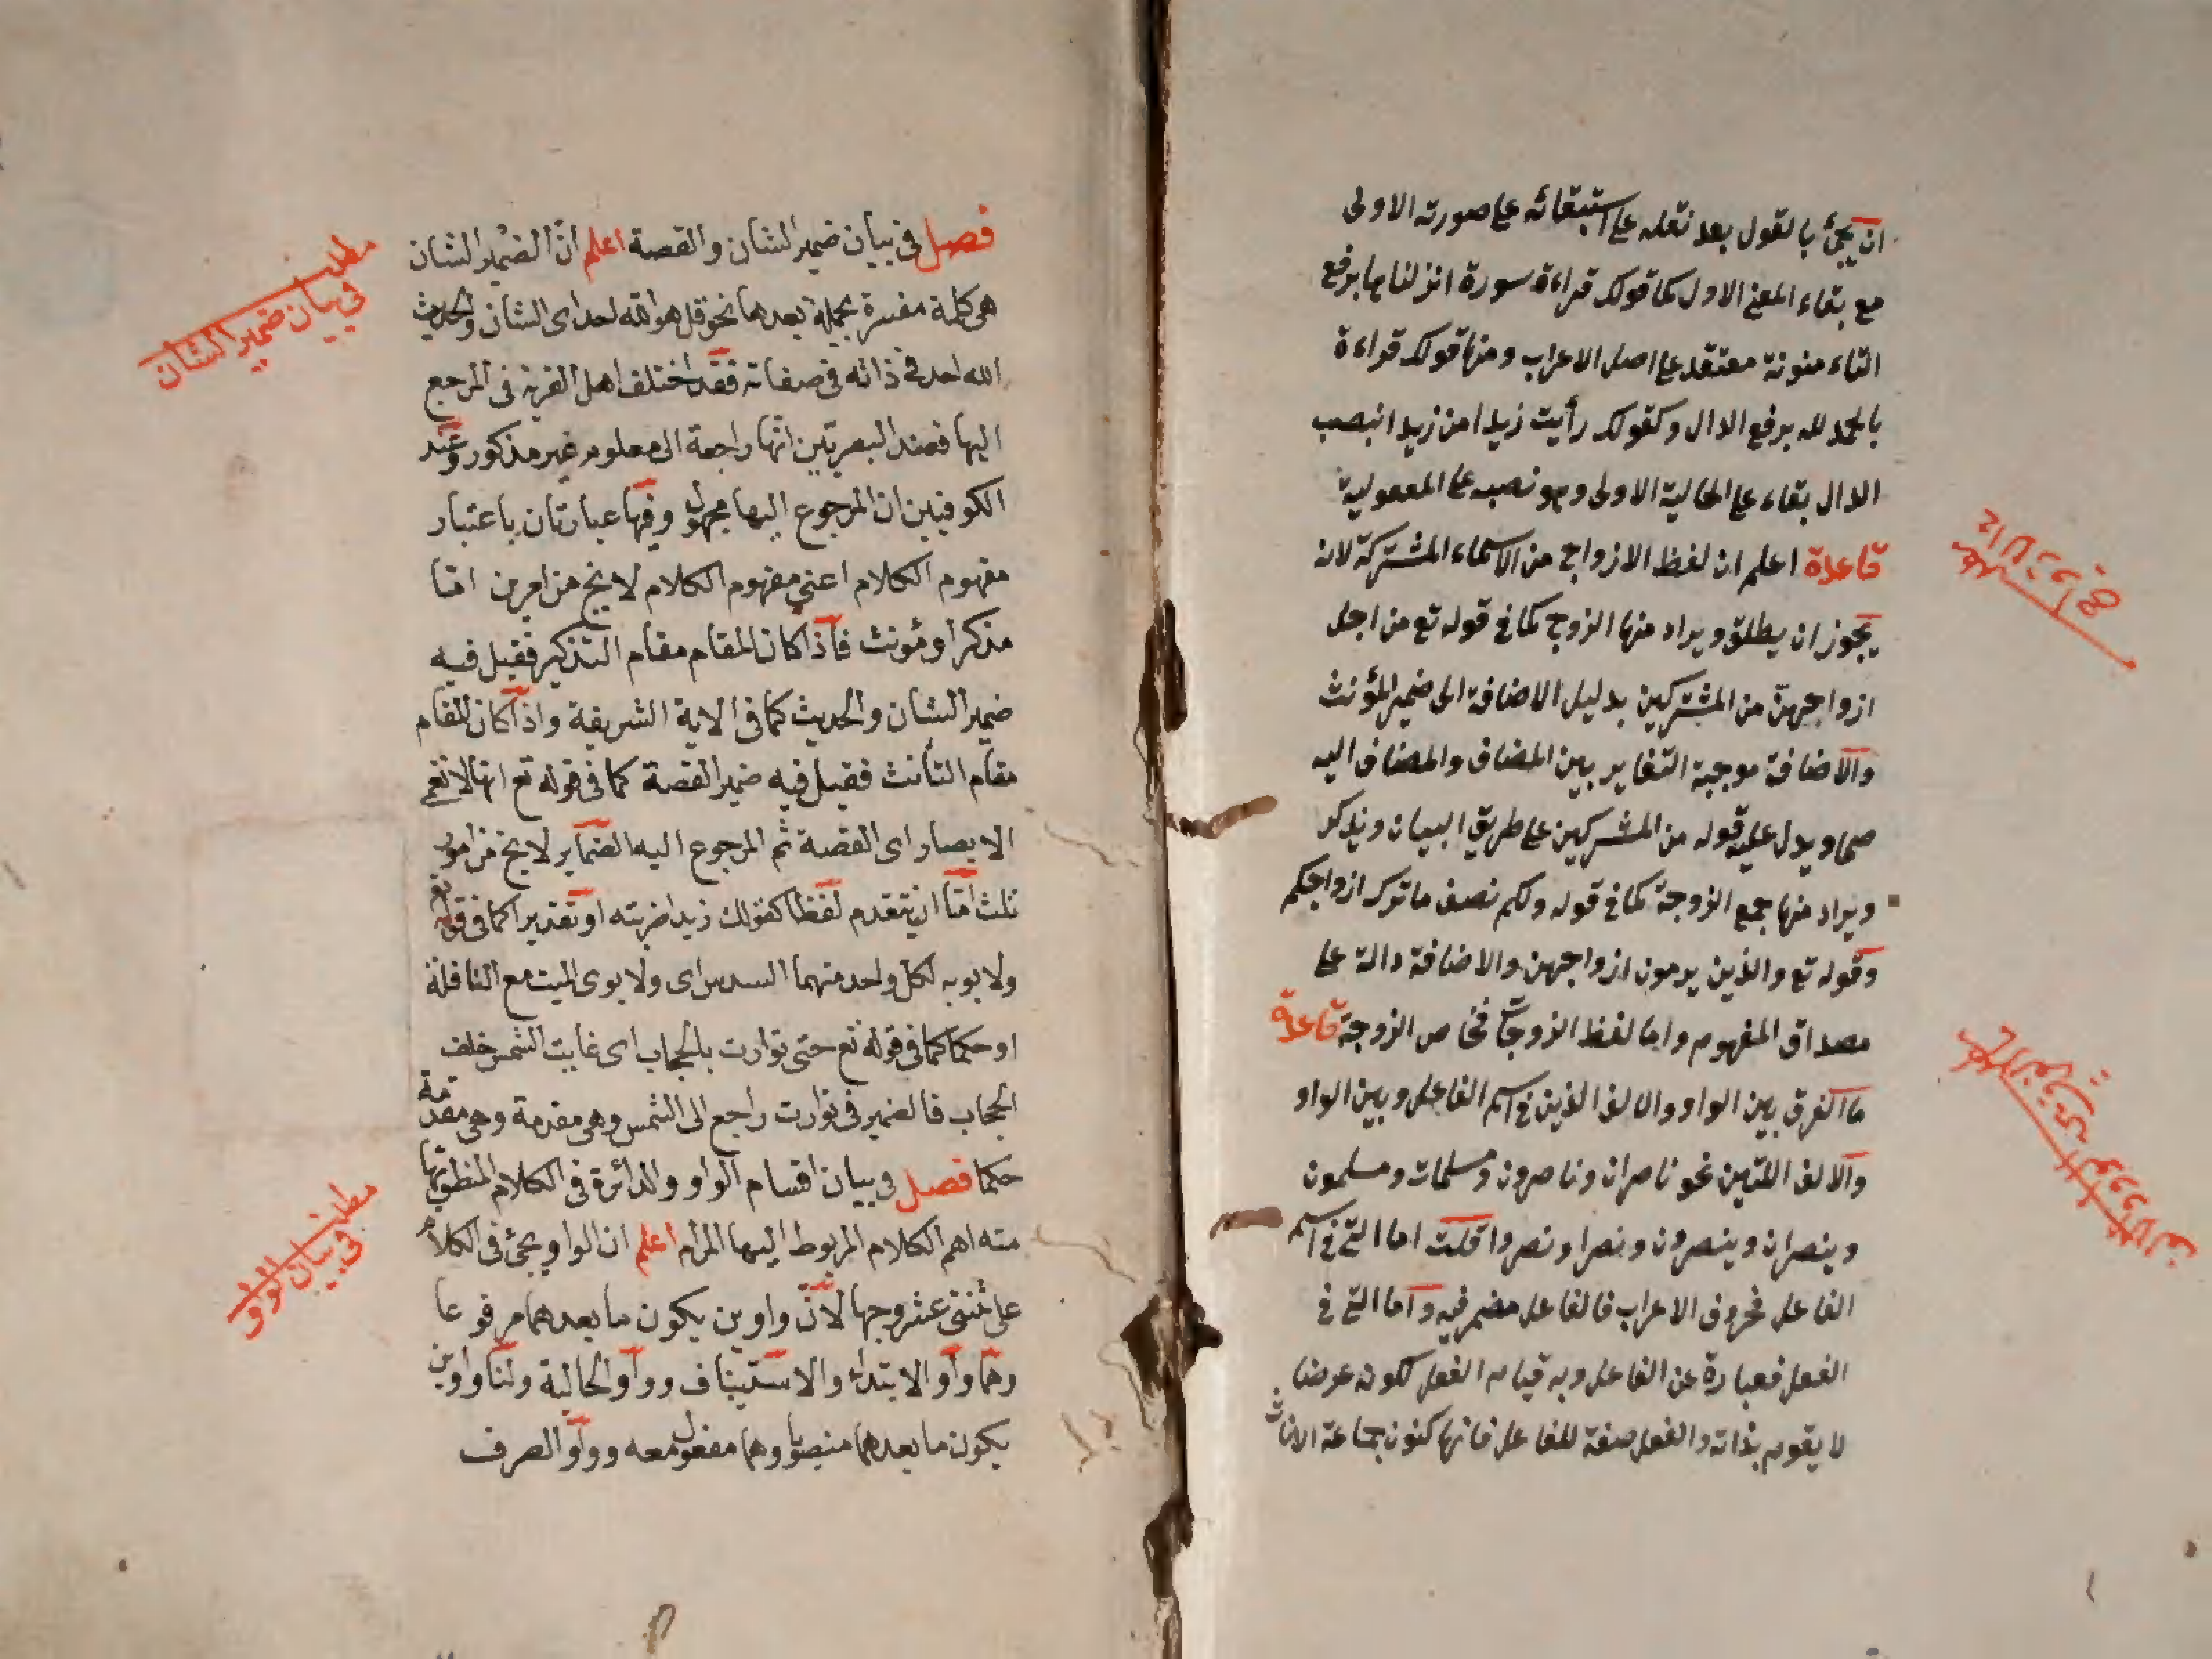 ان يجئ بالقول بعد نقله على استبقائه على صورته الاولى
مع بقاء المعنى الاول كما قولك قراءة سورة انزلناها برفع
التاء منونة معتقد على اصل الاعراب ومنها قولك قراءة
بالحمد لله برفع الدال وكقولك رأيت زيدا من زيدا بنصب
الدال بقاء على الحالية الاولى وهو نصب على المعمولية
قاعدة اعلم ان لفظ الازواج من الاسماء المشتركة لانه
يجوز ان يطلق ويراد منها الزوج كما في قوله تع من اجل
ازواجهن من المشتركين بدليل الاضافة الى ضمير المؤنث
والاضافة موجبة التغاير بين المضاف والمضاف اليه
ويدل عليه قوله من المشركين على طريق البيان ويذكر
ويراد منها جمع الزوجة كما في قوله ولكم نصف ما ترك ازواجكم
وقوله تع والذين يرمون ازواجهن والاضافة دالة على
مصداق المفهوم واما لفظ الزوجات فخاص الزوجة قاعدة
ما الفرق بين الواو والالف الذين في اسم الفاعل وبين الواو
والالف اللتين نحو ناصران وناصرون ومسلمات ومسلمون
وينصران وينصرون ونصرا ونصروا قلت اما التي في اسم
الفاعل فحروف الاعراب فالفاعل مضمر فيه واما التي في
الفعل فعبارة عن الفاعل وبه قيام الفعل لكونه عرضا
لا يقوم بذاته والفعل صفة للفاعل فانها كنون جماعة الاناث
فصل في بيان ضمير الشان والقصة اعلم ان الضمير الشان
هى كلمة مفسرة بجملة بعدها نحو قل هو الله احد اى الشان والحديث
الله احد في ذاته في صفاته فقد اختلف اهل القرية في المرجع
اليها فعند البصريين انها راجعة الى معلوم غير مذكور وعند
الكوفيين ان المرجوع اليها مجهول وفيها عبارتان باعتبار
مفهوم الكلام اعنى مفهوم الكلام لا يخ من امرين اما
مذكر او مؤنث فاذا كان المقام مقام التذكير فقيل فيه
ضمير الشان والحديث كما في الاية الشريفة واذا كان المقام
مقام التأنث فقيل فيه ضمير القصة كما في قوله تع انها لا تعمى
الابصار اى القصة ثم المرجوع اليه الضماير لا يخ من امور
ثلث اما ان يتقدم لفظا كقولك زيدا ضربته او تقديرا كما في قوله تع
ولابويه لكل واحد منهما السدس اى ولابوى الميت مع النافلة
او حكما كما في قوله تع حتى توارت بالحجاب اى غابت الشمس خلف
الحجاب فالضمير في توارت راجع الى الشمس وهى مقدمة وهى مقدمة
حكما فصل في بيان اقسام الواو والدائرة في الكلام المنظوم
منه اهم الكلام المربوط اليها المرام اعلم ان الواو يجئ في الكلام
على ثنتى عشر وجها لان واوين يكون ما بعدهما مرفوعا
وهما واو الابتداء والاستيناف وواو الحالية ولنا واوين
يكون ما بعدهما منصوبا وهما مفعول معه وواو الصرف
مطلب
في بيان ضمير الشان
مطلب
في بيان الواو